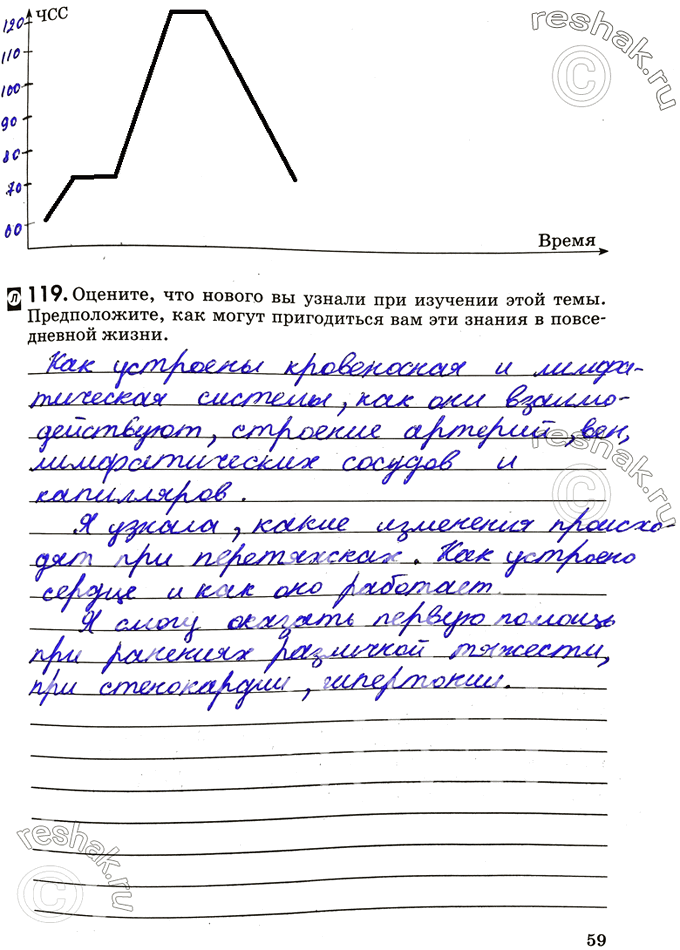 ЧСС
120
110
100
90
80
70
60
Время
reshak.ru
л 119. Оцените, что нового вы узнали при изучении этой темы.
Предположите, как могут пригодиться вам эти знания в повсе-
дневной жизни.
Как устроены кровеносная и лимфа-
тическая системы, как они взаимо-
действуют, строение артерий, вен,
лимфатических сосудов и
капилляров.
reshak.ru
Я узнала, какие изменения происхо-
дят при перетяжках. Как устроено
сердце и как оно работает.
Я смогу оказать первую помощь
при ранениях различной тяжести,
при стенокардии, гипертонии.
reshak.ru
59